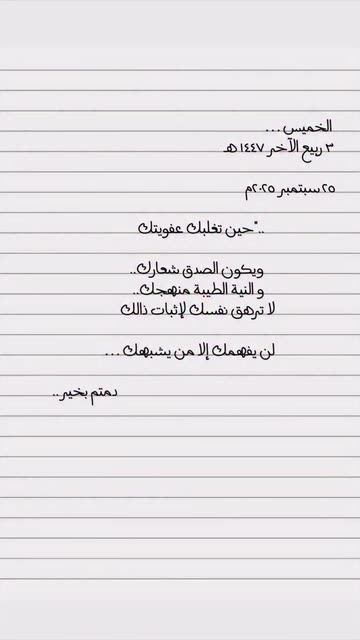 الخميس ...
٣ ربيع الآخر ١٤٤٧ هـ
٢٥ سبتمبر ٢٠٢٥م
.."حين تغلبك عفويتك
ويكون الصدق شعارك..
و النية الطيبة منهجك..
لا ترهق نفسك لإثبات ذالك
لن يفهمك إلا من يشبهك ...
دمتم بخير..